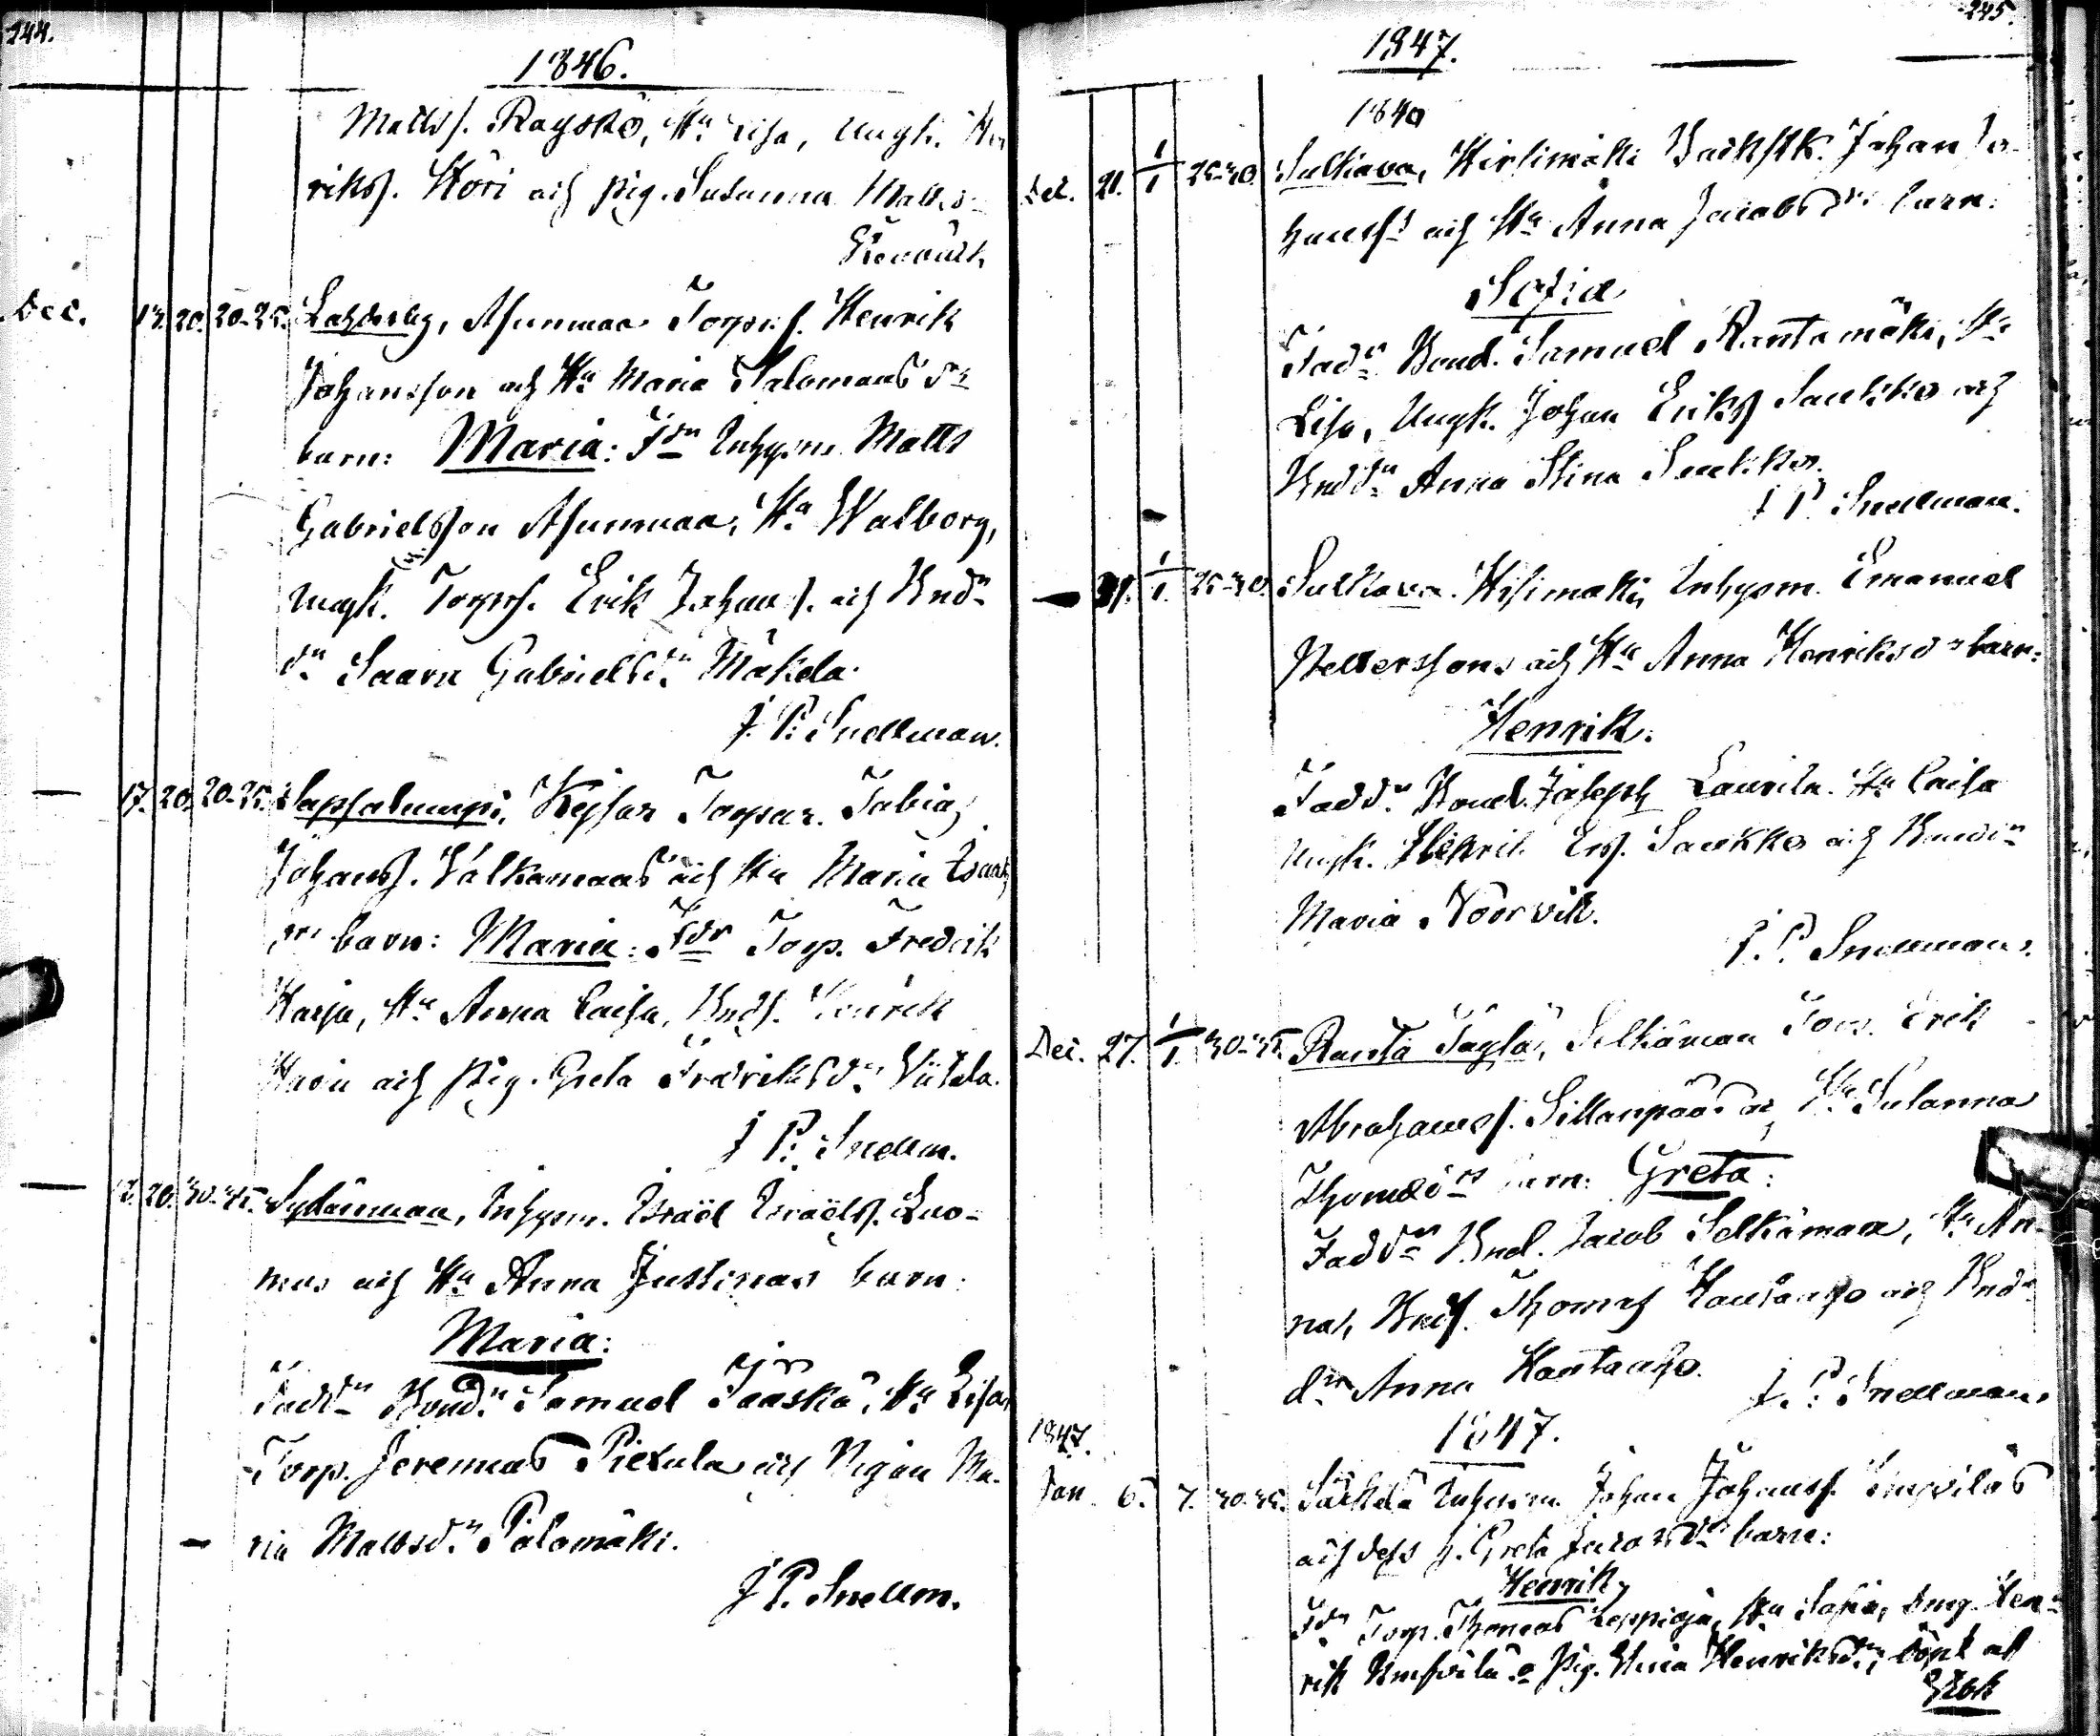 244.
1846.
Matts f. Rayskö, Hu Lisa, Ungk. Hen
rikss. Köri och pig. Susanna Matts
Dec. 13. 20. 20-25. Lahderby, Asunmaa Torpar. Henrik
Johansson och Hu Maria Salomons dr
barn: Maria: Fdr Inhysm. Matts
Gabrielsson Asunmaa, Hu Walborg,
ungk. Torps. Erik Johans s. och Bnd
dr Saara Gabrielsdr Mäkelä.
J. P. Snellman.
— 17. 20. 20-25. Sapsalampi, Kejsar Torpar. Tobias
Johanss. Valkamaas och Hu Maria Isaacs
dr barn: Maria: Fdr Torp. Fredrik
Harju, Hu Anna Caisa, Bnds. Henrik
och pig. Greta Fredriksdr Viitala.
J P. Snellm.
— 17. 20. 30-35. Sydänmaa, Inhysm. Israël Israëlss. Luo-
mas och Hu Anna Justinas barn:
Maria:
Faddr Bondn Samuel Jääskä, Hu Lisa,
Torp. Jeremias Pietula och Pigan Ma-
ria Mattsdr Palomäki.
J P. Snellm.
245.
1847.
1846
Dec. 21. 1/1 25-30. Sulkava, Hirsimäki Backstk. Johan Jo-
hanss och Hu Anna Jacobsdrs barn:
Sofia
Fadr Bond. Samuel Rantamäki, Hu
Lisa, Ungk. Johan Erikss Saukko och
Bnddr Anna Stina Saukko.
J P. Snellman.
— 21. 1/1. 25-30. Sulkava. Hisimäki, Inhysm. Emanuel
Petterssons och Hu Anna Henriksdrs barn:
Henrik.
Faddr Bond. Joseph Laurila. Hu Caisa
ungk. Henrik Ers. Saukko och Bnddr
Maria Norrvik.
J. P. Snellman.
Dec. 27. 1/1. 30-35. Ranta Töysä, Selkämaa Torp. Erik
Abrahamss. Sillanpääs och Hu Susanna
Thomædrs barn: Greta:
Faddr Bnd. Jacob Selkämaa, Hu An-
na, Bnds. Thomas Hautaaho och Bnd
dr Anna Hautaaho.
J. P. Snellman.
1847.
1847.
Jan. 6. 7. 30-35. Inhysm. Johan Johanss.
och dess h. Greta Jacobsdrs barn:
Henrik
Fdr Torp. Thomas Leppioja, Hu Sofia, dreng Hen-
rik o pig. Henriksdr, döpt af